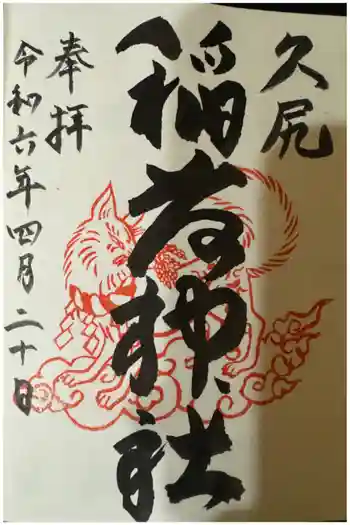 久尻
八稲荷神社
奉拝
令和六年四月二十日